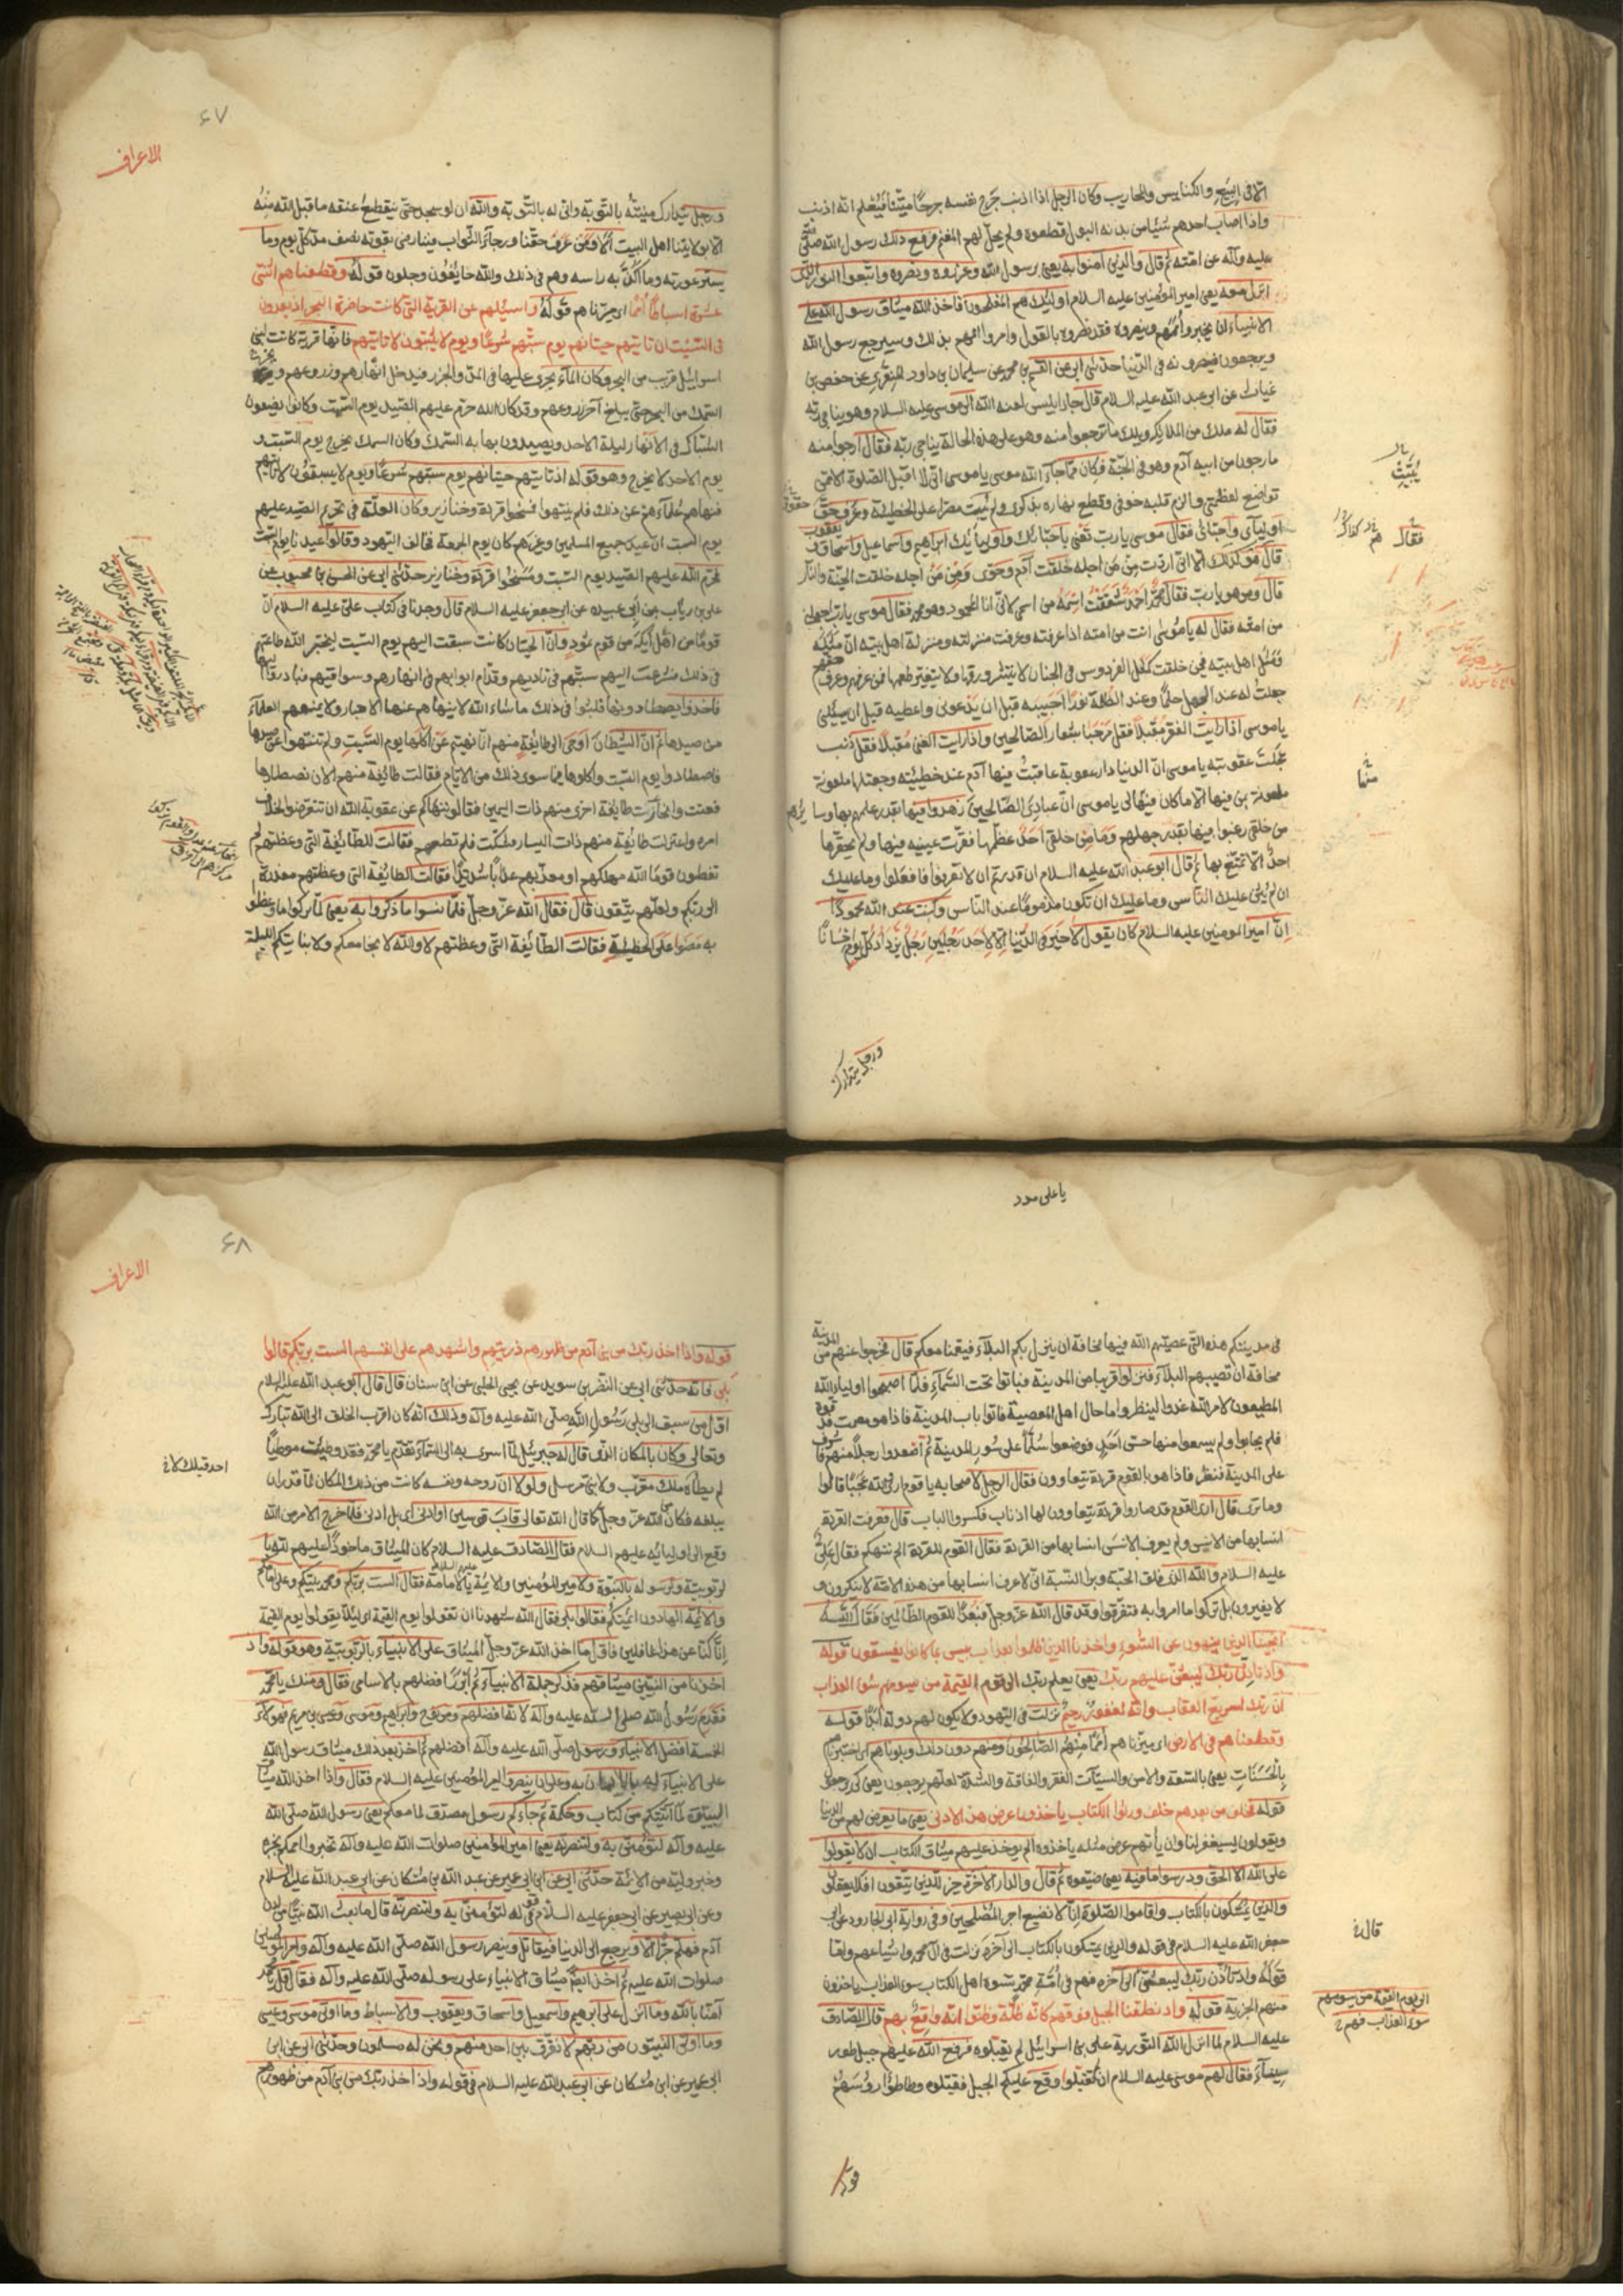 الا فى البيع والكنايس والمحاريب وكان الرجل اذا اذنب جرح نفسه جرحًا متينًا فيعلم انه اذنب
واذا اصاب احدهم شيئا من بدنه البول قطعوه ولم يحل لهم المغنم فرفع ذلك رسول الله صلى
عليه وآله عن امته ثم قال والذين آمنوا به يعنى برسول الله وعزروه ونصروه واتبعوا النور الذى
انزل معه يعنى امير المؤمنين عليه السلام اوليك هم المفلحون فاخذ الله ميثاق رسول الله على
الانبياء ان يخبروا أممهم وينصروه فقد نصروه بالقول وامروا اممهم بذلك وسيرجع رسول الله
ويرجعون فينصرونه فى الدنيا حدثنى ابى عن القسم بن محمد عن سليمان بن داود المنقرى عن حفص بن
غياث عن ابى عبد الله عليه السلام قال جاء ابليس لعنه الله الى موسى عليه السلام وهو يناجى ربه
فقال له ملك من الملايكة ويلك ما ترجوا منه وهو على هذه الحالة يناجى ربه فقال ارجوا منه
ما رجوت من ابيه آدم وهو فى الجنة فكان مما جاء الله موسى يا موسى انى لا اقبل الصلوة الا ممن
تواضع لعظمتى والزم قلبه خوفى وقطع نهاره بذكرى ولم يبت مصرا على الخطيئة وعرف حق
اوليآى واحبائى فقال موسى يا رب تعنى باحبائك واوليائك ابراهيم واسماعيل واسحاق ويعقوب
قال هو كذلك الا انى اردت من من اجله خلقت آدم وحوى ومن من اجله خلقت الجنة والنار
قال ومن هو يا رب فقال محمد احمد شققت اسمه من اسمى لانى انا المحمود وهو محمد فقال موسى يا رب اجعلنى
من امته فقال له يا موسى انت من امته اذا عرفته وعرفت منزلته ومنزلة اهل بيته ان مثله
ومثل اهل بيته فيمن خلقت كمثل الفردوس فى الجنان لا ينتشر ورقها ولا يتغير طعمها فمن عرفهم وعرف حقهم
جعلت له عند الجهل حلما وعند الظلمة نورا اجيبه قبل ان يدعونى واعطيه قبل ان يسئلنى
يا موسى اذا رايت الفقر مقبلًا فقل مرحبا بشعار الصالحين واذا رايت الغنى مقبلا فقل ذنب
عجلت عقوبته يا موسى ان الدنيا دار عقوبة عاقبت فيها آدم عند خطيئته وجعلتها ملعونة
ملعونة من فيها الا ما كان فيها لى يا موسى ان عبادى الصالحين زهدوا فيها بقدر علمهم بها وسايرهم
من خلقى رغبوا فيها بقدر جهلهم وما من خلقى احد عظمها فقرت عينيه فيها ولم يحقرها
احد الا تمتع بها ثم قال ابو عبد الله عليه السلام ان قدرتم ان لا تعرفوا فافعلوا وما عليك
ان لم يثن عليك الناس وما عليك ان تكون مذموما عند الناس وكنت عند الله محمودا
ان امير المومنين عليه السلام كان يقول لا خير فى الدنيا الا لاحد رجلين رجل يزداد كل يوم احسانًا
ورجل يتدارك
يبت
فقال
۶۷
الاعراف
ورجل يتدارك منيته بالتوبة وانى له بالتوبة والله ان لو سجد حتى ينقطع عنقه ما قبل الله منه
الا بولايتنا اهل البيت ألا ومن عرف حقنا ورجآء الثواب فينا رضى بقوته نصف مد كل يوم وما
يستر عورته وما اكن به راسه وهم فى ذلك والله خايفون وجلون قوله وقطعناهم اثنتى
عشرة اسباطًا أمما اى ميزناهم قوله واسئلهم عن القرية التى كانت حاضرة البحر اذ يعدون
فى السبت اذ تاتيهم حيتانهم يوم سبتهم شرعًا ويوم لا يسبتون لا تاتيهم فانها قرية كانت لبنى
اسرائيل قريب من البحر وكان المآء يجرى عليها فى المد والجزر فيدخل انهارهم وزروعهم ويخرج
السمك من البحر حتى يبلغ آخر زروعهم وقد كان الله حرم عليهم الصيد يوم السبت وكانوا يضعون
الشباك فى الانهار ليلة الاحد ويصيدون بها به السمك وكان السمك يخرج يوم السبت و
يوم الاحد لا يخرج وهو قوله اذ تاتيهم حيتانهم يوم سبتهم شرعًا ويوم لا يسبتون لا تاتيهم
فنهاهم علمآءهم عن ذلك فلم ينتهوا فمسخوا قردة وخنازير وكان العلة فى تحريم الصيد عليهم
يوم السبت ان عيد جميع المسلمين وغيرهم كان يوم الجمعة فخالف اليهود وقالوا عيدنا يوم السبت
فحرم الله عليهم الصيد يوم السبت ومسخوا قردة وخنازير حدثنى ابى عن الحسن بن محبوب عن
على بن رياب عن ابى عبيده عن ابى جعفر عليه السلام قال وجدنا فى كتاب على عليه السلام ان
قوما من اهل أيكة من قوم ثمود وان الحيتان كانت سبقت اليهم يوم السبت ليختبر الله طاعتهم
فى ذلك فشرعت اليهم سبتهم فى ناديهم وقدام ابوابهم فى انهارهم وسواقيهم فبادروا اليها
فاخذوا يصطادونها فلبثوا فى ذلك ما شاء الله لا ينهاهم عنها الاحبار ولا يمنعهم العلمآء
من صيدها ثم ان الشيطان اوحى الى طائفة منهم انما نهيتم عن اكلها يوم السبت ولم تنتهوا عن صيدها
فاصطادوا يوم السبت واكلوها فيما سوى ذلك من الايام فقالت طائفة منهم الان نصطادها
فعتت وانحازت طايفة اخرى منهم ذات اليمين فقالوا ننهاكم عن عقوبة الله ان تتعرضوا لخلاف
امره واعتزلت طايفة منهم ذات اليسار فسكتت فلم تعظهم فقالت للطائفة التى وعظتهم لم
تعظون قوما الله مهلكهم او معذبهم عذابًا شديدًا فقالت الطائفة التى وعظتهم معذرة
الى ربكم ولعلهم يتقون قال فقال الله عز وجل فلما نسوا ما ذكروا به يعنى لما تركوا ما وعظوا
به مضوا على الخطيئة فقالت الطائفة التى وعظتهم لا والله لا نجامعكم ولا نبايتكم الليلة
يا على مدد
فى مدينتكم هذه التى عصيتم الله فيها مخافة ان ينزل بكم البلآء فيعمنا معكم قال فخرجوا عنهم من المدينة
مخافة ان تصيبهم البلآء فنزلوا قريبا من المدينة فباتوا تحت السمآء فلما اصبحوا اولياء الله
المطيعون لامر الله غدوا لينظروا ما حال اهل المعصية فاتوا باب المدينة فاذا هو مصمت فدقوه
فلم يجابوا ولم يسمعوا منها حس احد فوضعوا سلما على سور المدينة ثم أصعدوا رجلًا منهم فاشرف
على المدينة فنظر فاذا هو بالقوم قردة يتعاوون فقال الرجل لاصحابه يا قوم ارى والله عجبا قالوا
وما ترى قال ارى القوم قد صاروا قردة يتعاوون لها اذناب فكسروا الباب قال فعرفت القردة
انسابها من الانس ولم يعرف الانس انسابها من القردة فقال القوم للقردة الم ننهكم فقال على
عليه السلام والله الذى فلق الحبة وبرا النسمة انى لاعرف انسابها من هذه الامة لا ينكرون و
لا يغيرون بل تركوا ما امروا به فتفرقوا وقد قال الله عز وجل فبعدًا للقوم الظالمين فقال الله
انجينا الذين ينهون عن السوء واخذنا الذين ظلموا بعذاب بيس بما كانوا يفسقون قوله
واذ تاذن ربك ليبعثن عليهم ربك يعنى يعلم ربك الى يوم القيمة من يسومهم سوء العذاب
ان ربك لسريع العقاب وانه لغفور رحيم نزلت فى اليهود ولا يكون لهم دولة أبدا قوله
وقطعناهم فى الارض اى ميزناهم أمما منهم الصالحون ومنهم دون ذلك وبلوناهم اى اختبرناهم
بالحسنات يعنى بالسعة والامن والسيئآت الفقر والفاقة والشدة لعلهم يرجعون يعنى كى يرجعوا
قوله فخلف من بعدهم خلف ورثوا الكتاب ياخذون عرض هذا الادنى يعنى ما يعرض لهم من الدنيا
ويقولون سيغفر لنا وان يأتهم عرض مثله ياخذوه الم يوخذ عليهم ميثاق الكتاب ان لا يقولوا
على الله الا الحق ودرسوا ما فيه يعنى ضيعوه ثم قال والدار الآخرة خير للذين يتقون افلا يعقلون
والذين يمسكون بالكتاب واقاموا الصلوة انا لا نضيع اجر المصلحين وفى رواية ابى الجارود عن ابى
جعفر الله عليه السلام فى قوله والذين يمسكون بالكتاب الى آخره نزلت فى آل محمد واشياعهم واما
قوله واذ تأذن ربك ليبعثن الى آخره فهم فى أمة محمد يسوموا اهل الكتاب سوء العذاب ياخذون
منهم الجزية قوله واذ نتقنا الجبل فوقهم كانه ظلة وظنوا انه واقع بهم قال الصادق
عليه السلام لما انزل الله التورية على بنى اسرائيل لم يقبلوه فرفع الله عليهم جبل طور
سيناء فقال لهم موسى عليه السلام ان لم تقبلوا وقع عليكم الجبل فقبلوه وطاطؤا رؤسهم
قوله
الى يوم القيمة من يسومهم
سوء العذاب فهم
۶۸
الاعراف
قوله واذا اخذ ربك من بنى آدم من ظهورهم ذريتهم واشهدهم على انفسهم الست بربكم قالوا
بلى فانه حدثنى ابى عن النضر بن سويد عن يحيى الحلبى عن ابى سنان قال قال ابو عبد الله عليه السلام
اول من سبق الى بلى رسول الله صلى الله عليه وآله وذلك انه كان اقرب الخلق الى الله تبارك
وتعالى وكان بالمكان الذى قال له جبرئيل لما اسرى به الى السمآء تقدم يا محمد فقد وطئت موطئا
لم يطأه ملك مقرب ولا نبى مرسل ولولا ان روحه ونفسه كانت من ذلك المكان لما قدر ان
يبلغه فكان من الله عز وجل كما قال الله تعالى قاب قوسين او ادنى اى بل ادنى فلما خرج الامر من الله
وقع الى اوليائه عليهم السلام فقال الصادق عليه السلام كان الميثاق ماخوذا عليهم لله بال
ربوبية ولرسوله بالنبوة ولامير المؤمنين والائمة بالامامة فقال الست بربكم ومحمد نبيكم وعلى امامكم
والائمة الهادون ائمتكم فقالوا بلى فقال الله شهدنا ان تقولوا يوم القيمة اى لئلا يقولوا يوم القيمة
انا كنا عن هذا غافلين فاول ما اخذ الله عز وجل الميثاق على الانبياء بالربوبية وهو قوله واذ
اخذنا من النبيين ميثاقهم فذكر جملة الانبياء ثم ابرز افضلهم بالاسامى فقال ومنك يا محمد
فقدم رسول الله صلى الله عليه وآله لانه افضلهم ومن نوح وابراهيم وموسى وعيسى بن مريم فهولاء
الخمسة افضل الانبياء ورسول صلى الله عليه وآله افضلهم ثم اخذ بعد ذلك ميثاق رسول الله
على الانبياء له بالايمان به وعلى ان ينصروا امير المؤمنين عليه السلام فقال واذا اخذ الله ميثاق
النبيين لما آتيتكم من كتاب وحكمة ثم جاءكم رسول مصدق لما معكم يعنى رسول الله صلى الله
عليه وآله لتؤمنن به ولتنصرنه يعنى امير المؤمنين صلوات الله عليه وآله تخبروا اممكم بخبره
وخبر وليه من الائمة حدثنى ابى عن ابن ابى عمير عن عبد الله بن مسكان عن ابى عبد الله عليه السلام
وعن ابى بصير عن ابى جعفر عليه السلام فى قوله لتؤمنن به ولتنصرنه قال ما بعث الله نبيًا من لدن
آدم فهلم جرا الا ويرجع الى الدنيا فيقاتل وينصر رسول الله صلى الله عليه وآله وامير المومنين
صلوات الله عليه ثم اخذ ايضا ميثاق الانبياء على رسوله صلى الله عليه وآله فقال قل يا محمد
آمنا بالله وما انزل على ابرهيم واسمعيل واسحاق ويعقوب والاسباط وما اوتى موسى وعيسى
وما اوتى النبيون من ربهم لا نفرق بين احد منهم ونحن له مسلمون وحدثنى ابى عن ابن
ابى عمير عن ابن مسكان عن ابى عبد الله عليه السلام فى قوله واذ اخذ ربك من بنى آدم من ظهورهم